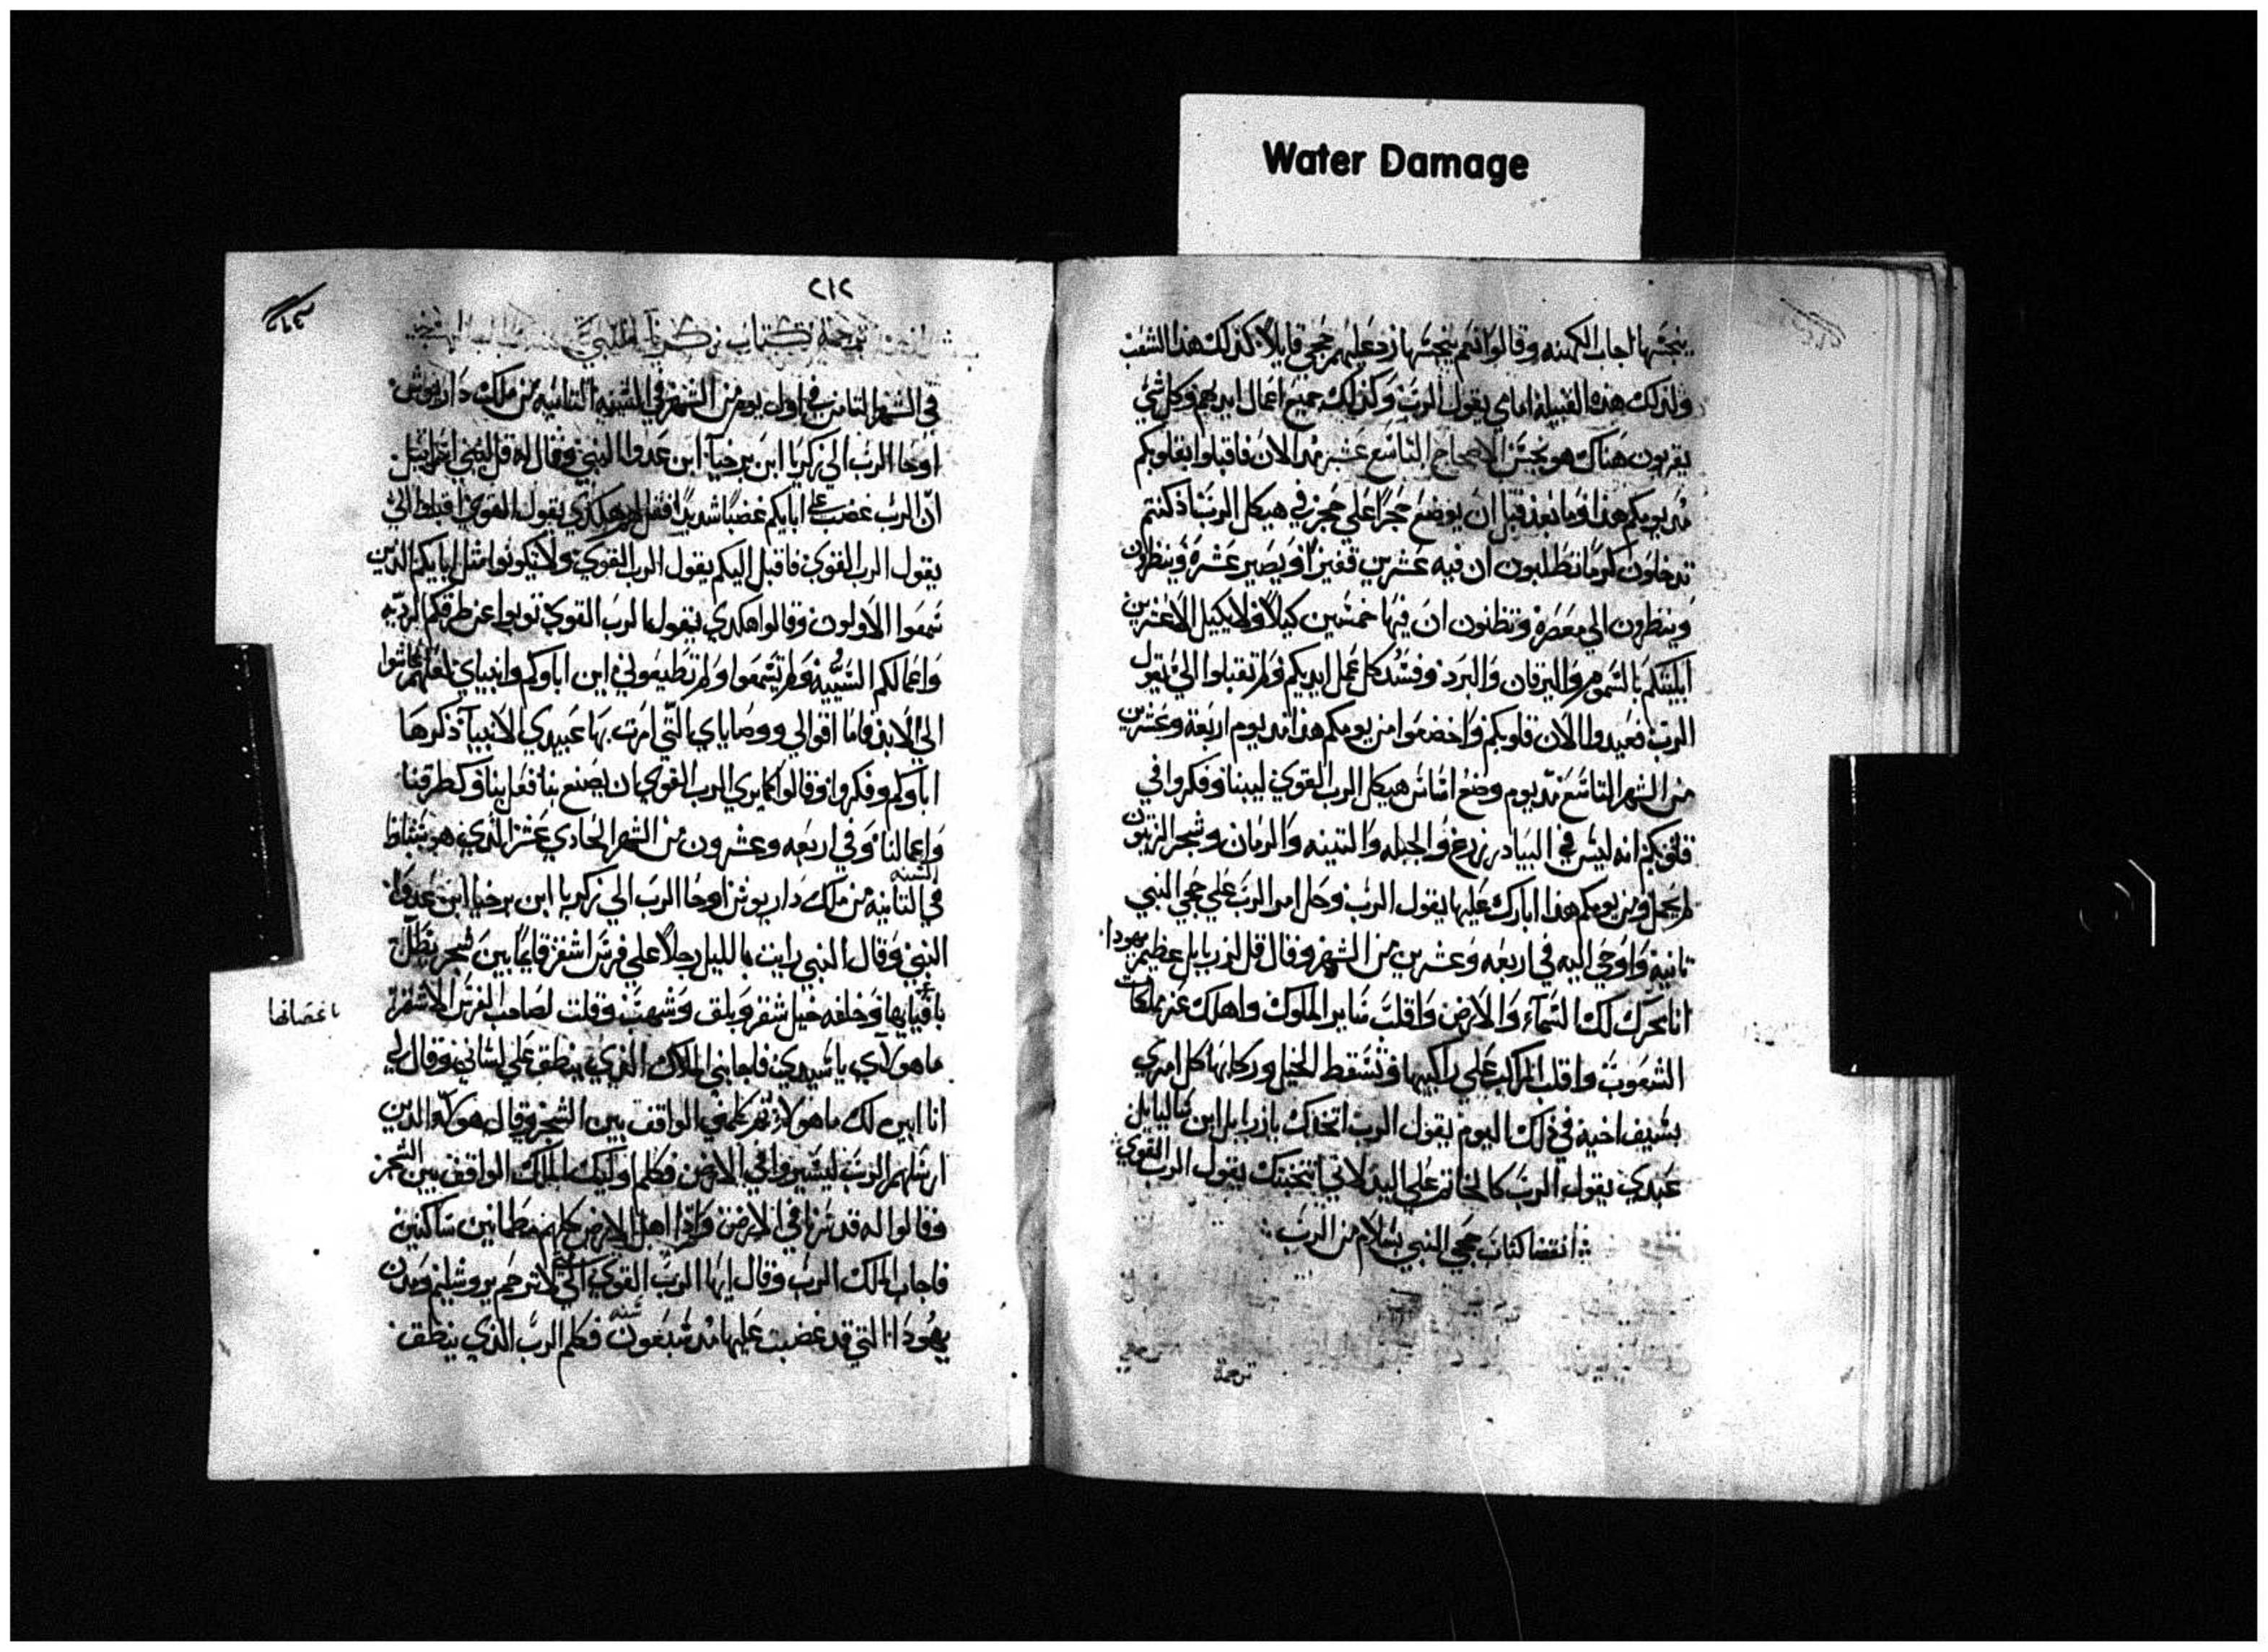 Water Damage
ينجسها اجاب الكهنه وقالوا نعم ينجسها رد عليهم حجي قايلا كذلك هذا الشعب
ولذلك هذه القبيلة امامي يقول الرب وكذلك جميع اعمال ايديهم وكل شي
يقربون هناك هو نجس الاصحاح التاسع عشر مد الان فاقبلوا بقلوبكم
من يومكم هذا وما بعد قبل ان يوضع حجرا علي حجر في هيكل الرب اذ كنتم
تدخلون كرما تظلبون ان فيه عشرين قفيزا ويصير عشره وينظرون
وينظرون الي معصره وتظنون ان فيها خمسين كيلا ولا يكيل الا عشرين
ابليتكم بالسموم واليرقان والبرد وفسد كل عمل ايديكم ولم تقبلوا الي يقول
الرب فعيدوا الان قلوبكم واخضعوا من يومكم هذا مد يوم اربعة وعشرين
من الشهر التاسع مد يوم وضع اساس هيكل الرب القوي ليبنا وفكروا في
قلوبكم انه ليس في البيادر زرع والجبله والتينه والرمان وشجر الزيتون
لم يحمل ومن يومكم هذا ابارك عليها يقول الرب وحل امر الرب علي حجي النبي
ثانية واوحي اليه في اربعه وعشرين من الشهر وقال قل لزربابل عظيم يهودا
انا محرك لك السماء والارض واقلب منابر الملوك واهلك عز مملكات
الشعوب واقلب المراكب علي راكبيها وتسقط الخيل وركابها كل امري
بسيف اخيه في ذلك اليوم يقول الرب اتخذك يا زربابل ابن شاليايل
عبدي يقول الرب كالخاتم علي اليد لاني انتخبتك يقول الرب القوي
انقضا كتاب حجي النبي بسلام من الرب
ترجمة
٢١٢
ترجمة كتاب زكريا النبي
في الشهر الثامن في اول يوم من الشهر في السنه الثانيه من ملك داريوش
اوحا الرب الي زكريا ابن برخيا ابن عدوا النبي وقال له قل لبني اسراييل
ان الرب غضب علي ابايكم غضبا شديدا فقل لهم هكدي يقول القوي اقبلوا الي
يقول الرب القوي فاقبل اليكم يقول الرب القوي ولا تكونوا مثل ابايكم الذين
سمعوا الاولون وقالوا هكدي يقول الرب القوي توبوا عن طرقكم الرديه
واعمالكم السييه ولم يسمعوا ولم تطيعوني اين اباوكم وانبياي لعلهم عاشوا
الي الابد فاما اقوالي ووصاياي التي امرت بها عبيدي الانبيا ذكرها
اباوكم وفكروا وقالوا كما يري الرب القوي ان يصنع بنا فعل بنا وكطرقنا
واعمالنا وفي اربعه وعشرون من الشهر الحادي عشر الذي هو شباط
في السنه الثانيه من ملك داريوش اوحا الرب الي زكريا ابن برخيا ابن عدوا
النبي وقال النبي رايت بالليل رجلا علي فرس اشقر قايما بين شجر يظلل
بافيايها وخلفه خيل شقر وبلق وشهب وقلت لصاحب الفرس الاشقر
باغصانها
ما هولاي يا سيدي فاجابني الملاك الذي ينطق علي لساني وقال لي
انا ابين لك ما هولاء ثم كلمني الواقف بين الشجر وقال هولاء الذين
ارسلهم الرب ليسيروا في الارض فكلم اوليك الملاك الواقف بين الشجر
وقالوا له قد سرنا في الارض واذا اهل الارض كلهم مطمانين ساكنين
فاجاب ملك الرب وقال ايها الرب القوي الي متي لا ترحم يروشليم ومدن
يهودا التي قد غضبت عليها مند سبعون سنه فكلم الرب الذي ينطق